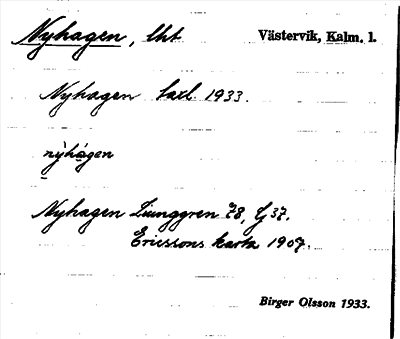 Nyhagen, lht Västervik, Kalm. l.
Nyhagen taxl. 1933.
nỳhágen
Nyhagen Ljunggren 78, G 37.
Ericssons karta 1907.
Birger Olsson 1933.